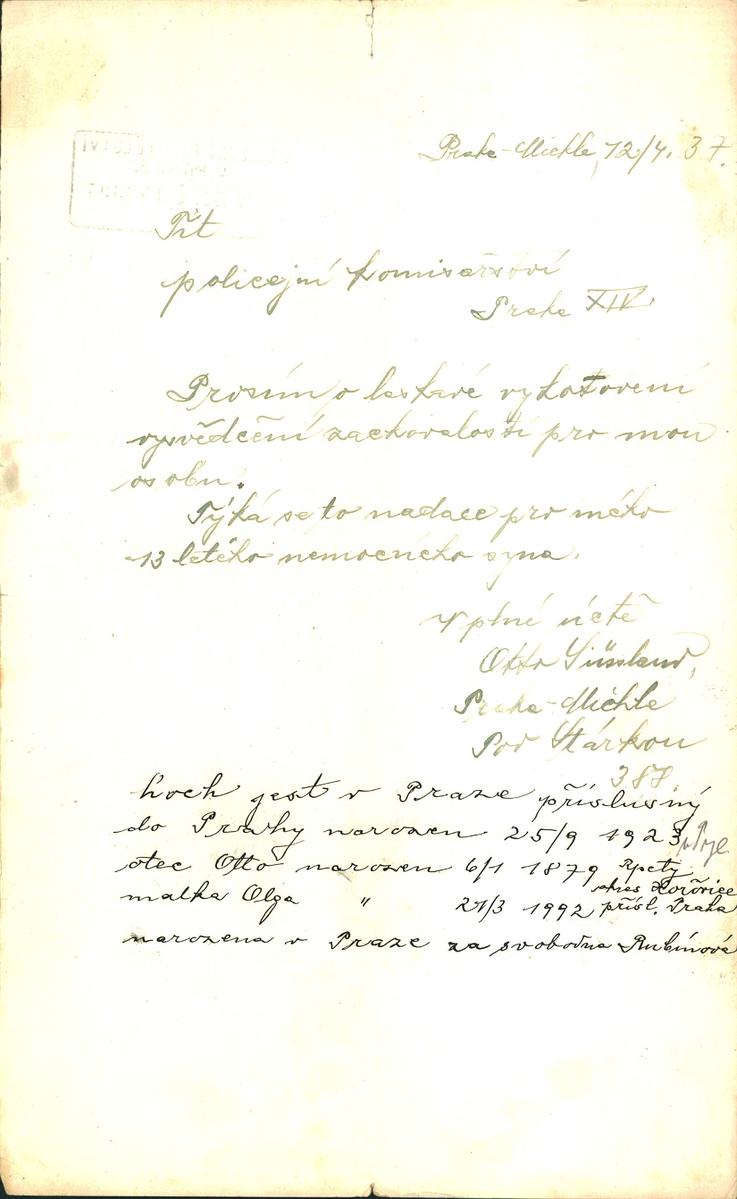 Praha-Michle, 12/4. 37.
Tit
policejní komisařství
Praha XIV.
Prosím o laskavé vyhotovení
vysvědčení zachovalosti pro mou
osobu.
Týká se to nadace pro mého
13 letého nemocného syna.
V plné úctě
Otto Süssland,
Praha-Michle
Pod Stárkou
387.
hoch jest v Praze příslušný
do Prahy narozen 25/9 1923 v Praze
otec Otto narozen 6/1 1879 Rpety
okres Hořovice
matka Olga " 27/3 1992 přísl. Praha
narozena v Praze za svobodna Rubínová